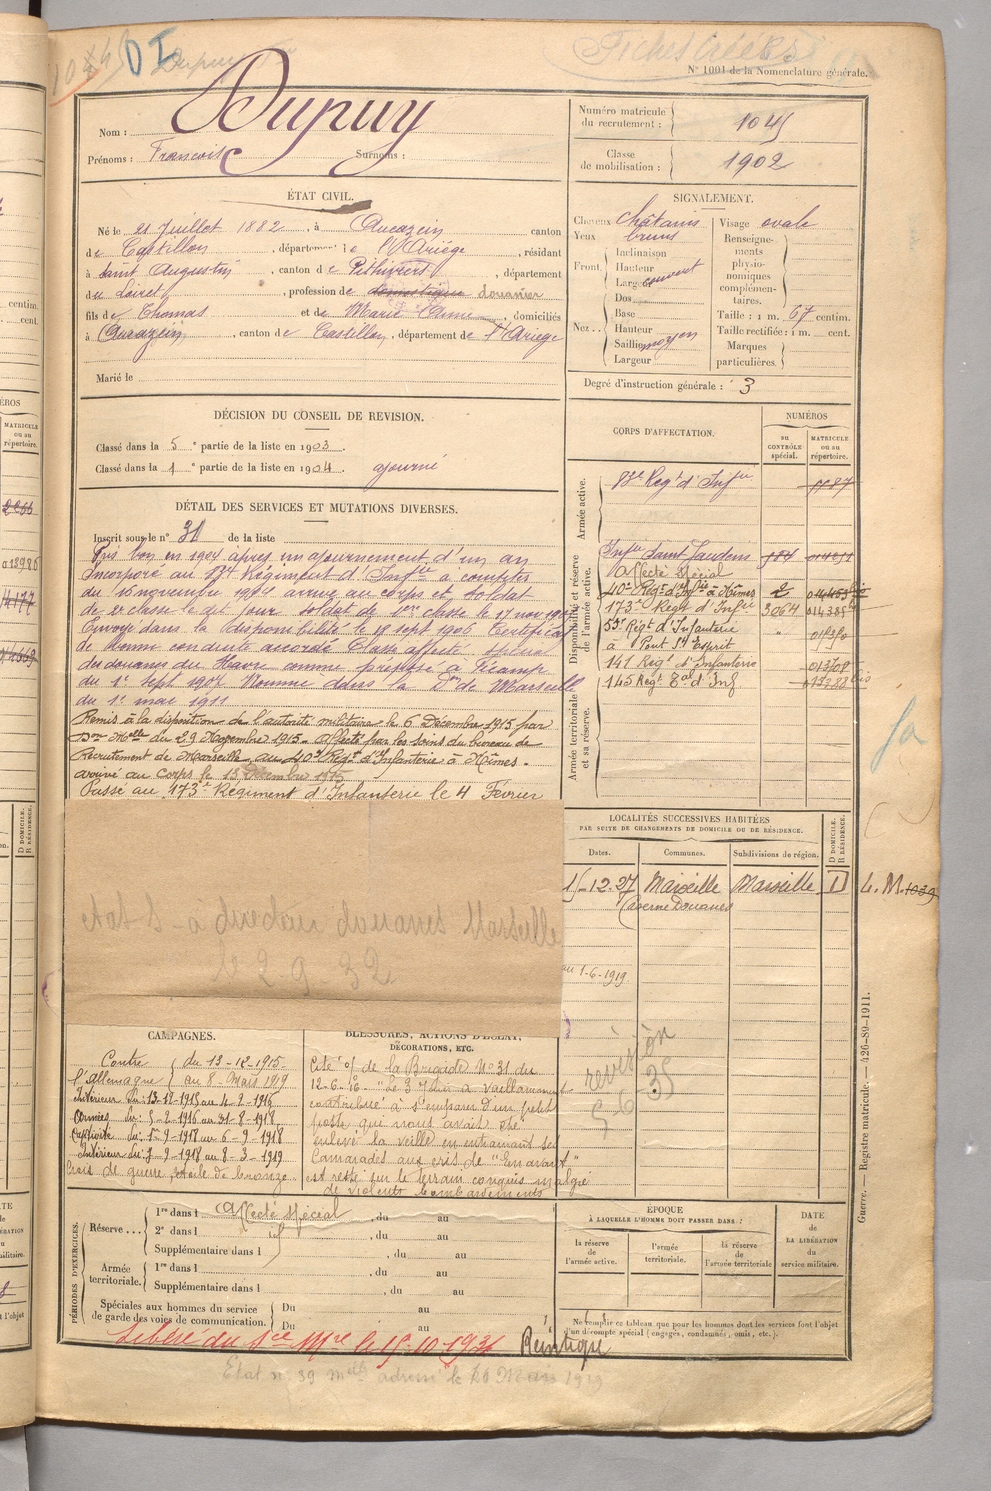 N° 1001 de la Nomenclature générale.
Nom : Dupuy
Prénoms : François Surnoms :
Numéro matricule du recrutement : 1045
Classe de mobilisation : 1902
ÉTAT CIVIL.
Né le 21 Juillet 1882, à Aucazein canton
de Castillon, département de l'Ariège, résidant
à Saint Augustin, canton de Pithiviers, département
du Loiret, profession de domestique douanier
fils de Thomas et de Marie Anne, domiciliés
à Aucazein, canton de Castillon, département de l'Ariège
Marié le
SIGNALEMENT.
Cheveux châtains
Yeux bruns
Front. Inclinaison
Hauteur
Largeur couvert
Nez.. Dos
Base
Hauteur
Saillie moyen
Largeur
Visage ovale
Renseignements physionomiques complémentaires.
Taille : 1 m. 67 centim.
Taille rectifiée : 1 m. cent.
Marques particulières.
Degré d'instruction générale : 3
DÉCISION DU CONSEIL DE REVISION.
Classé dans la 5e partie de la liste en 1903.
Classé dans la 1e partie de la liste en 1904. ajourné
DÉTAIL DES SERVICES ET MUTATIONS DIVERSES.
Inscrit sous le n° 31 de la liste
Pris bon en 1904 après un ajournement d'un an
Incorporé au Régiment d'Infie à compter
du 16 novembre 1904 arrivé au corps et soldat
de 2e classe le dit jour. Soldat de 1ère classe le 17 nov
Envoyé dans la disponibilité le 18 sept 1906 Certificat
de bonne conduite accordé Classé affecté spécial
des douanes du Havre comme préposé à Fécamp
du 1er sept 1907 Nommé dans la Don de Marseille
du 1er mai 1911
Remis à la disposition de l'autorité militaire le 6 Décembre 1915 par
Don Melle du 29 Novembre 1915. Affecté par les soins du bureau de
Recrutement de Marseille au 40e Régt d'Infanterie à Nîmes.
arrivé au corps le 13 Décembre 1915
Passé au 173e Régiment d'Infanterie le 4 Février
CORPS D'AFFECTATION.
NUMÉROS
au contrôle spécial.
MATRICULE ou au répertoire.
Armée active.
83e Regt d'Infie
Disponibilité et réserve de l'armée active.
Infie Saint Gaudens 984
Affecté Spécial
40e Regt d'Infie à Nîmes 2
173e Regt d'Infie 3064 014385
Regt d'Infanterie
à Pont St Esprit
141 Regt d'Infanterie
145 Regt Tal d'Inf
Armée territoriale et sa réserve.
LOCALITÉS SUCCESSIVES HABITÉES
PAR SUITE DE CHANGEMENTS DE DOMICILE OU DE RÉSIDENCE.
Dates. Communes. Subdivisions de région. D DOMICILE. R RÉSIDENCE.
15-12-27 Marseille Marseille D L. M. 1039
Caserne Douanes
au 1-6-1919
revision
5 6 35
Etat S - a directeur douanes Marseille
le 2 9 32
CAMPAGNES.
Contre l'Allemagne du 13-12-1915
au 8 Mars 1919
Intérieur du : 13-12-1915 au 4-2-1916
Armées du : 5-2-1916 au 31-8-1918
Captivité du : 1-9-1918 au 6-9-1918
Intérieur du : 7-9-1918 au 8-3-1919
Croix de guerre étoile de bronze
BLESSURES, ACTIONS D'ÉCLAT,
DÉCORATIONS, ETC.
Cité O/ de la Brigade N° 31 du
12-6-16. "Le 3 Juin a vaillamment
contribué à s'emparer d'un petit
poste que nous avait été
enlevé la veille en entrainant ses
Camarades aux cris de "En avant"
est resté sur le terrain conquis malgré
de violents bombardements
PÉRIODES D'EXERCICES.
Réserve... 1re dans l Affecté Spécial, du au
2e dans l, du au
Supplémentaire dans l, du au
Armée territoriale. 1re dans l, du au
Supplémentaire dans l, du au
Spéciales aux hommes du service de garde des voies de communication. Du au
Du au
ÉPOQUE
À LAQUELLE L'HOMME DOIT PASSER DANS :
la réserve de l'armée active.
l'armée territoriale.
la réserve de l'armée territoriale
DATE de LA LIBÉRATION du service militaire.
Ne remplir ce tableau que pour les hommes dont les services font l'objet
d'un décompte spécial (engagés, condamnés, omis, etc.).
Libéré du Sce Mre le 15-10-1931
Etat n° 39 adressé le 20 Mars 1919
Guerre. — Registre matricule. — 426-89-1911.